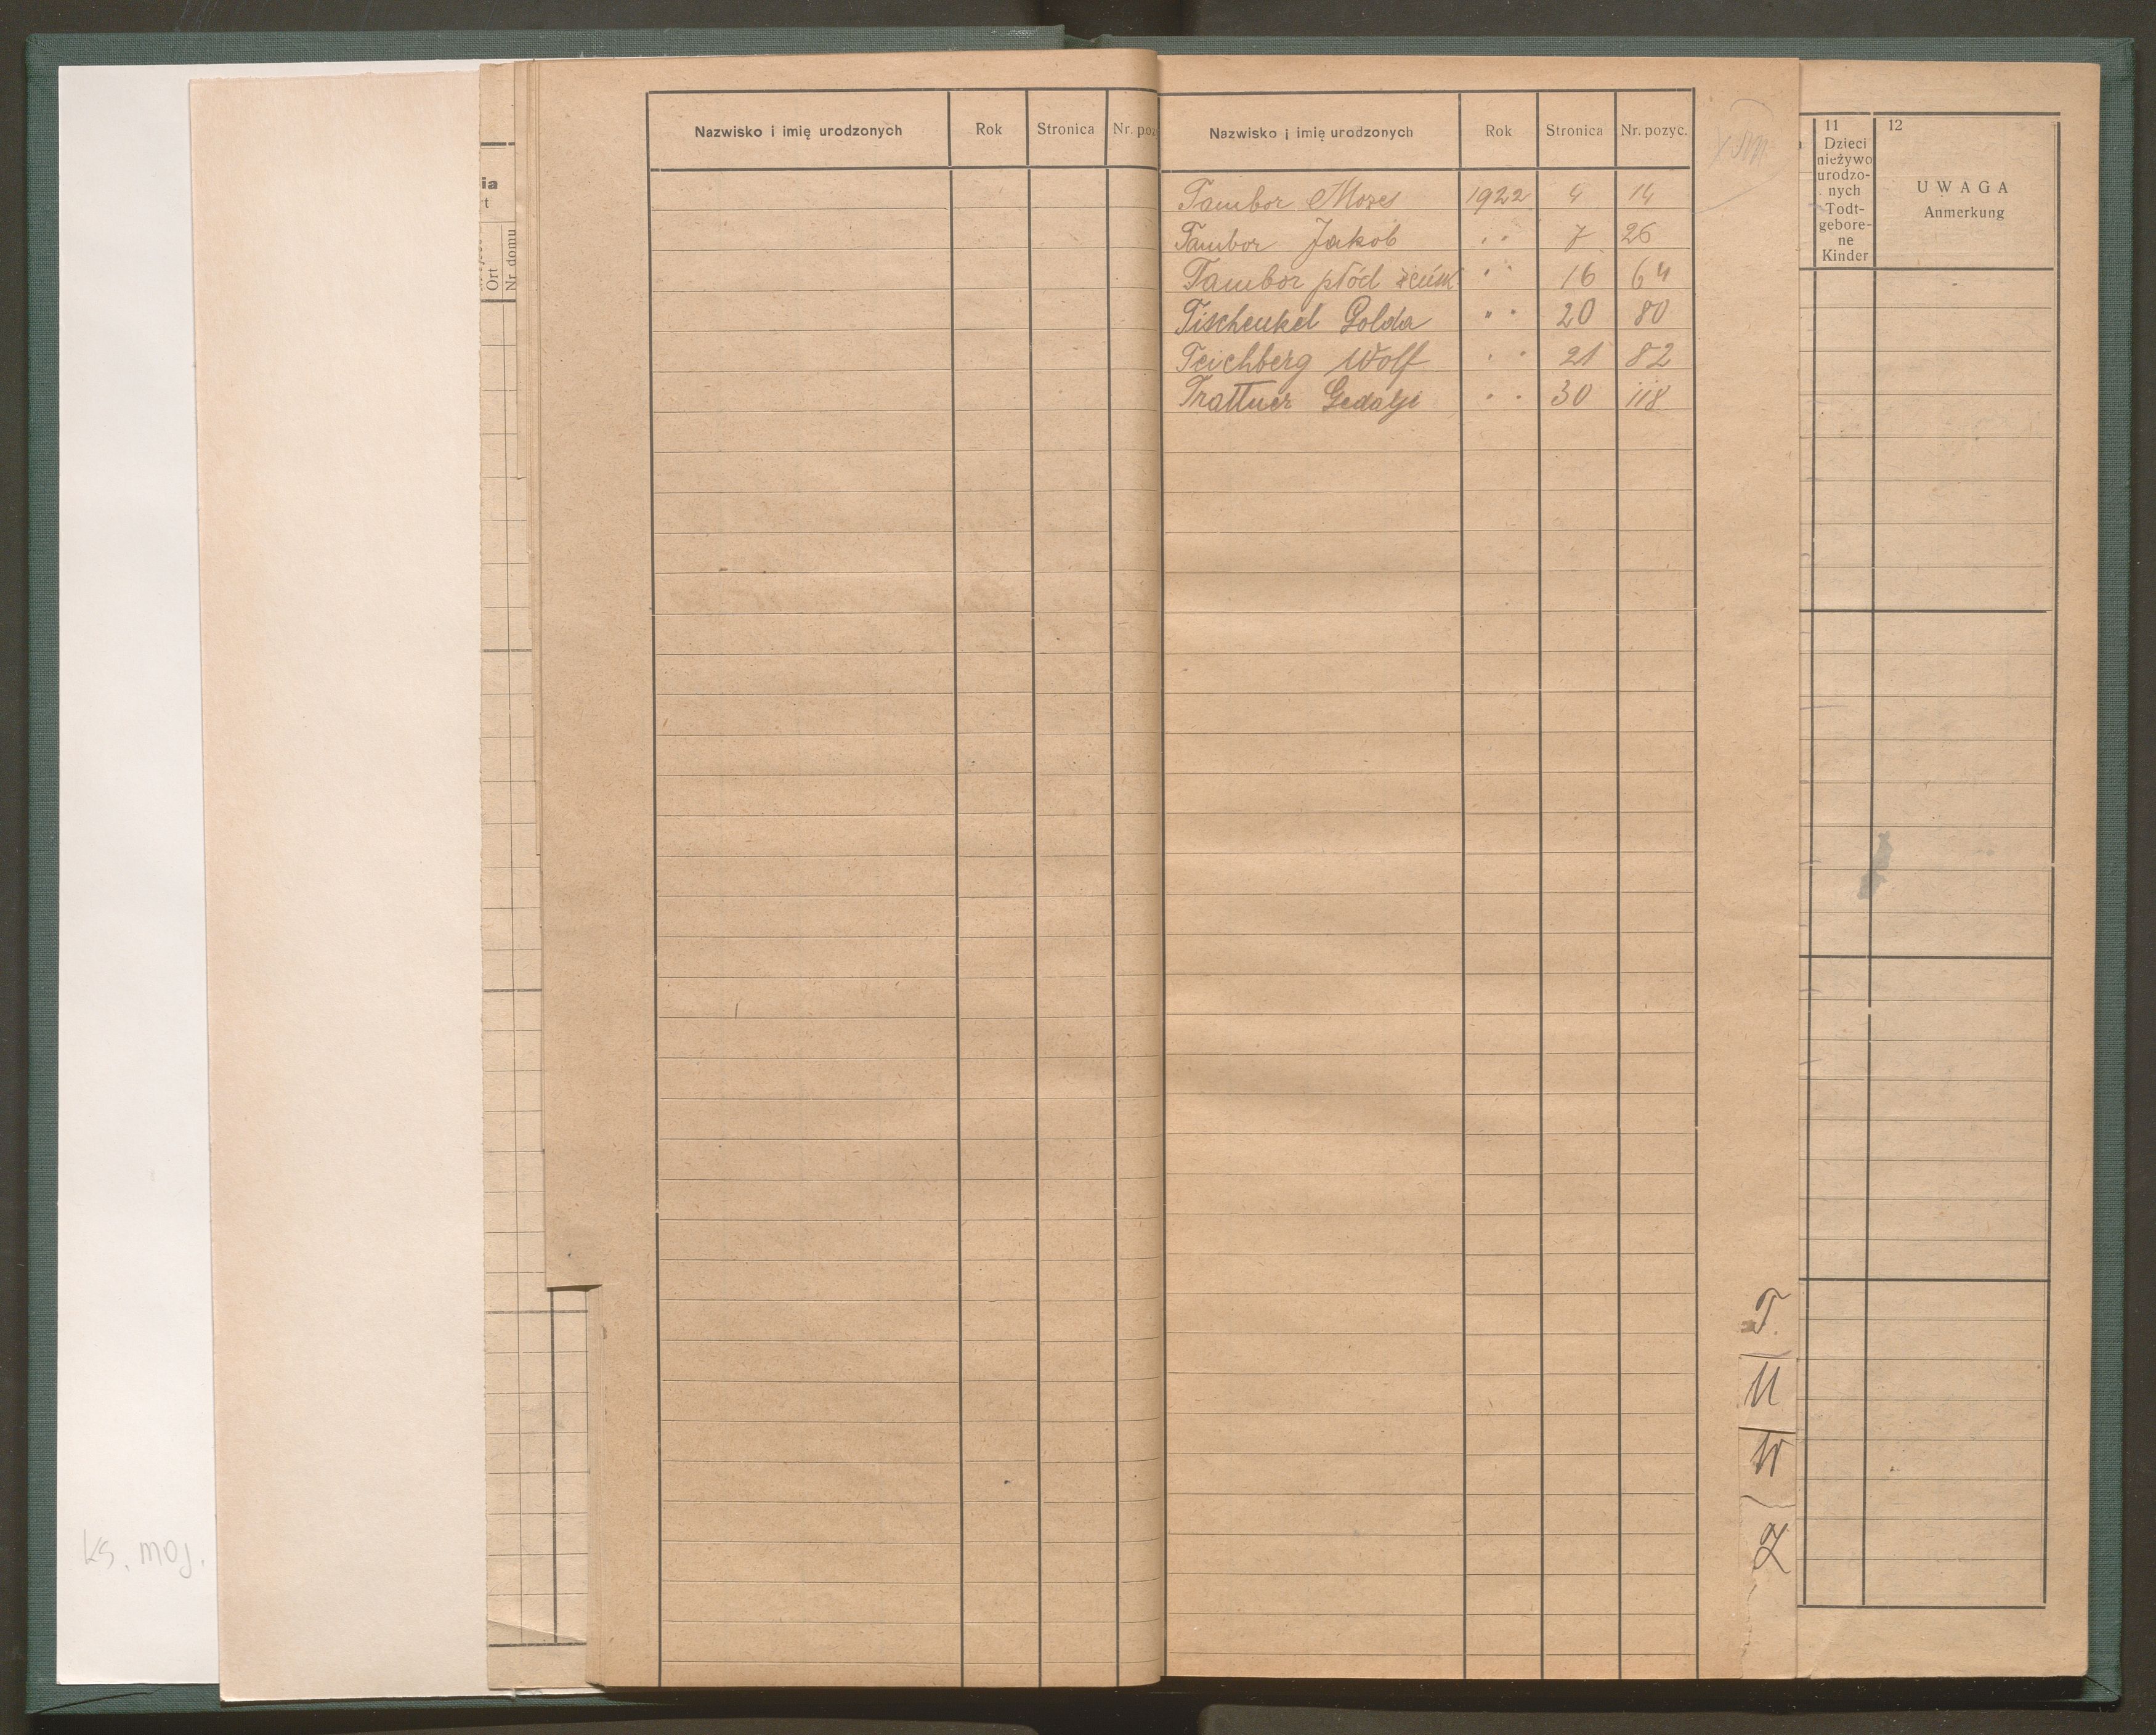 Nazwisko i imię urodzonych Rok Stronica Nr. poz
Nazwisko i imię urodzonych Rok Stronica Nr. pozyc.
Tambor Mozes 1922 4 14
Tambor Jakob " 7 26
Tambor płód żeńsk " 16 64
Tischenkel Golda " 20 80
Teichberg Wolf " 21 82
Trattner Gedalje " 30 118
T.
U
W
Z
ia
t
Ort
Nr domu
11
Dzieci
nieżywo
urodzo-
nych
Todt-
gebore-
ne
Kinder
12
UWAGA
Anmerkung
ks. moj.